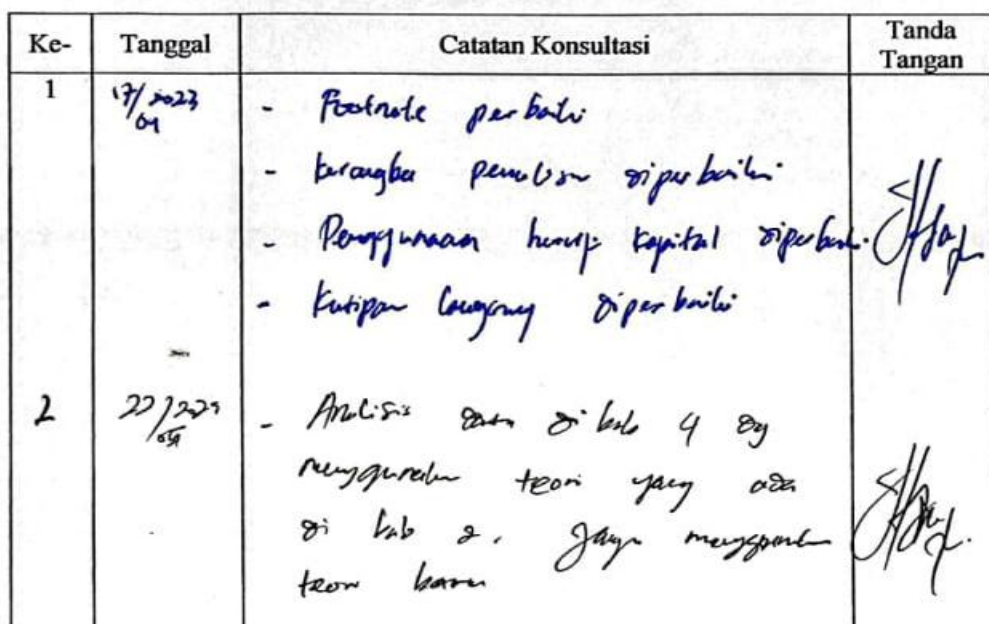 Ke- Tanggal Catatan Konsultasi Tanda Tangan
1 17/2023 - Footnote perbaiki
09
- Kerangka penulisan diperbaiki
- Penggunaan huruf kapital diperbaiki
- Kutipan langsung diperbaiki
2 22/2023 - Analisis data di bab 4 dg
09
menggunakan teori yang ada
di bab 2. Jangan menggunakan
teori baru